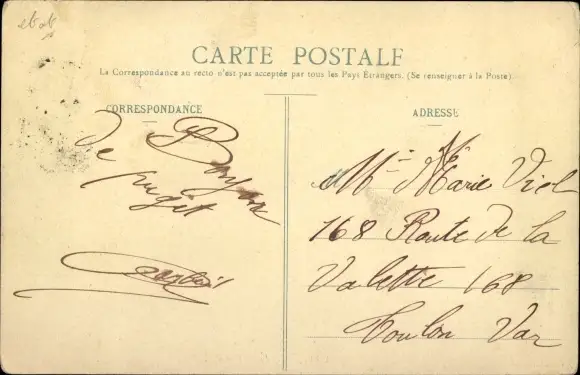 CARTE POSTALE
La Correspondance au recto n'est pas acceptée par tous les Pays Étrangers. (Se renseigner à la Poste)
CORRESPONDANCE
Bonjour
de
puget
ADRESSE
Marie Viel
168 Route de la
Valette 168
Toulon Var